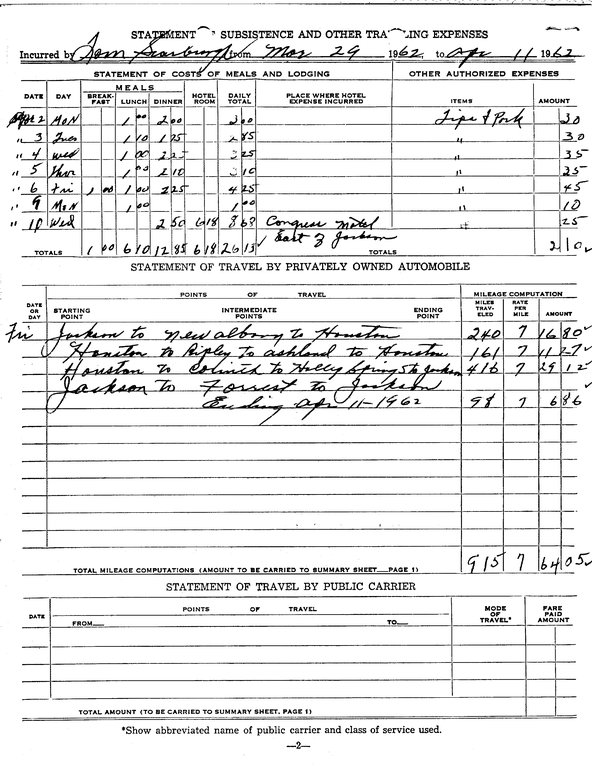 STATEMENT SUBSISTENCE AND OTHER TRA LING EXPENSES
Incurred by Tom Scarbrough from Mar 29 1962, to Apr 11 1962
STATEMENT OF COSTS OF MEALS AND LODGING OTHER AUTHORIZED EXPENSES
DATE DAY MEALS BREAK-FAST LUNCH DINNER HOTEL ROOM DAILY TOTAL PLACE WHERE HOTEL EXPENSE INCURRED ITEMS AMOUNT
Apr 2 MON 1 00 2 00 3 00 Tips & Park 30
" 3 Tues 1 10 1 75 2 85 " 30
" 4 Wed 1 00 2 25 3 25 " 35
" 5 Thur 1 00 2 10 3 10 " 35
" 6 Fri 1 00 1 00 2 25 4 25 " 45
" 9 MON 1 00 1 00 " 10
" 10 Wed 2 50 6 18 8 68 Congress Motel " 25
East of Jackson
TOTALS 1 00 6 10 12 85 6 18 26 13 TOTALS 2 10
STATEMENT OF TRAVEL BY PRIVATELY OWNED AUTOMOBILE
DATE OR DAY POINTS OF TRAVEL MILEAGE COMPUTATION
STARTING POINT INTERMEDIATE POINTS ENDING POINT MILES TRAV-ELED RATE PER MILE AMOUNT
Fri Jackson to New Albany to Houston 240 7 16 80
Houston to Ripley to Ashland to Houston 161 7 11 27
Houston to Corinth to Holly Springs to Jackson 416 7 29 12
Jackson to Forrest to Jackson
Ending Apr 11-1962 98 7 6 86
TOTAL MILEAGE COMPUTATIONS (AMOUNT TO BE CARRIED TO SUMMARY SHEET PAGE 1) 915 7 64 05
STATEMENT OF TRAVEL BY PUBLIC CARRIER
DATE POINTS OF TRAVEL MODE OF TRAVEL* FARE PAID AMOUNT
FROM TO
TOTAL AMOUNT (TO BE CARRIED TO SUMMARY SHEET. PAGE 1)
*Show abbreviated name of public carrier and class of service used.
—2—